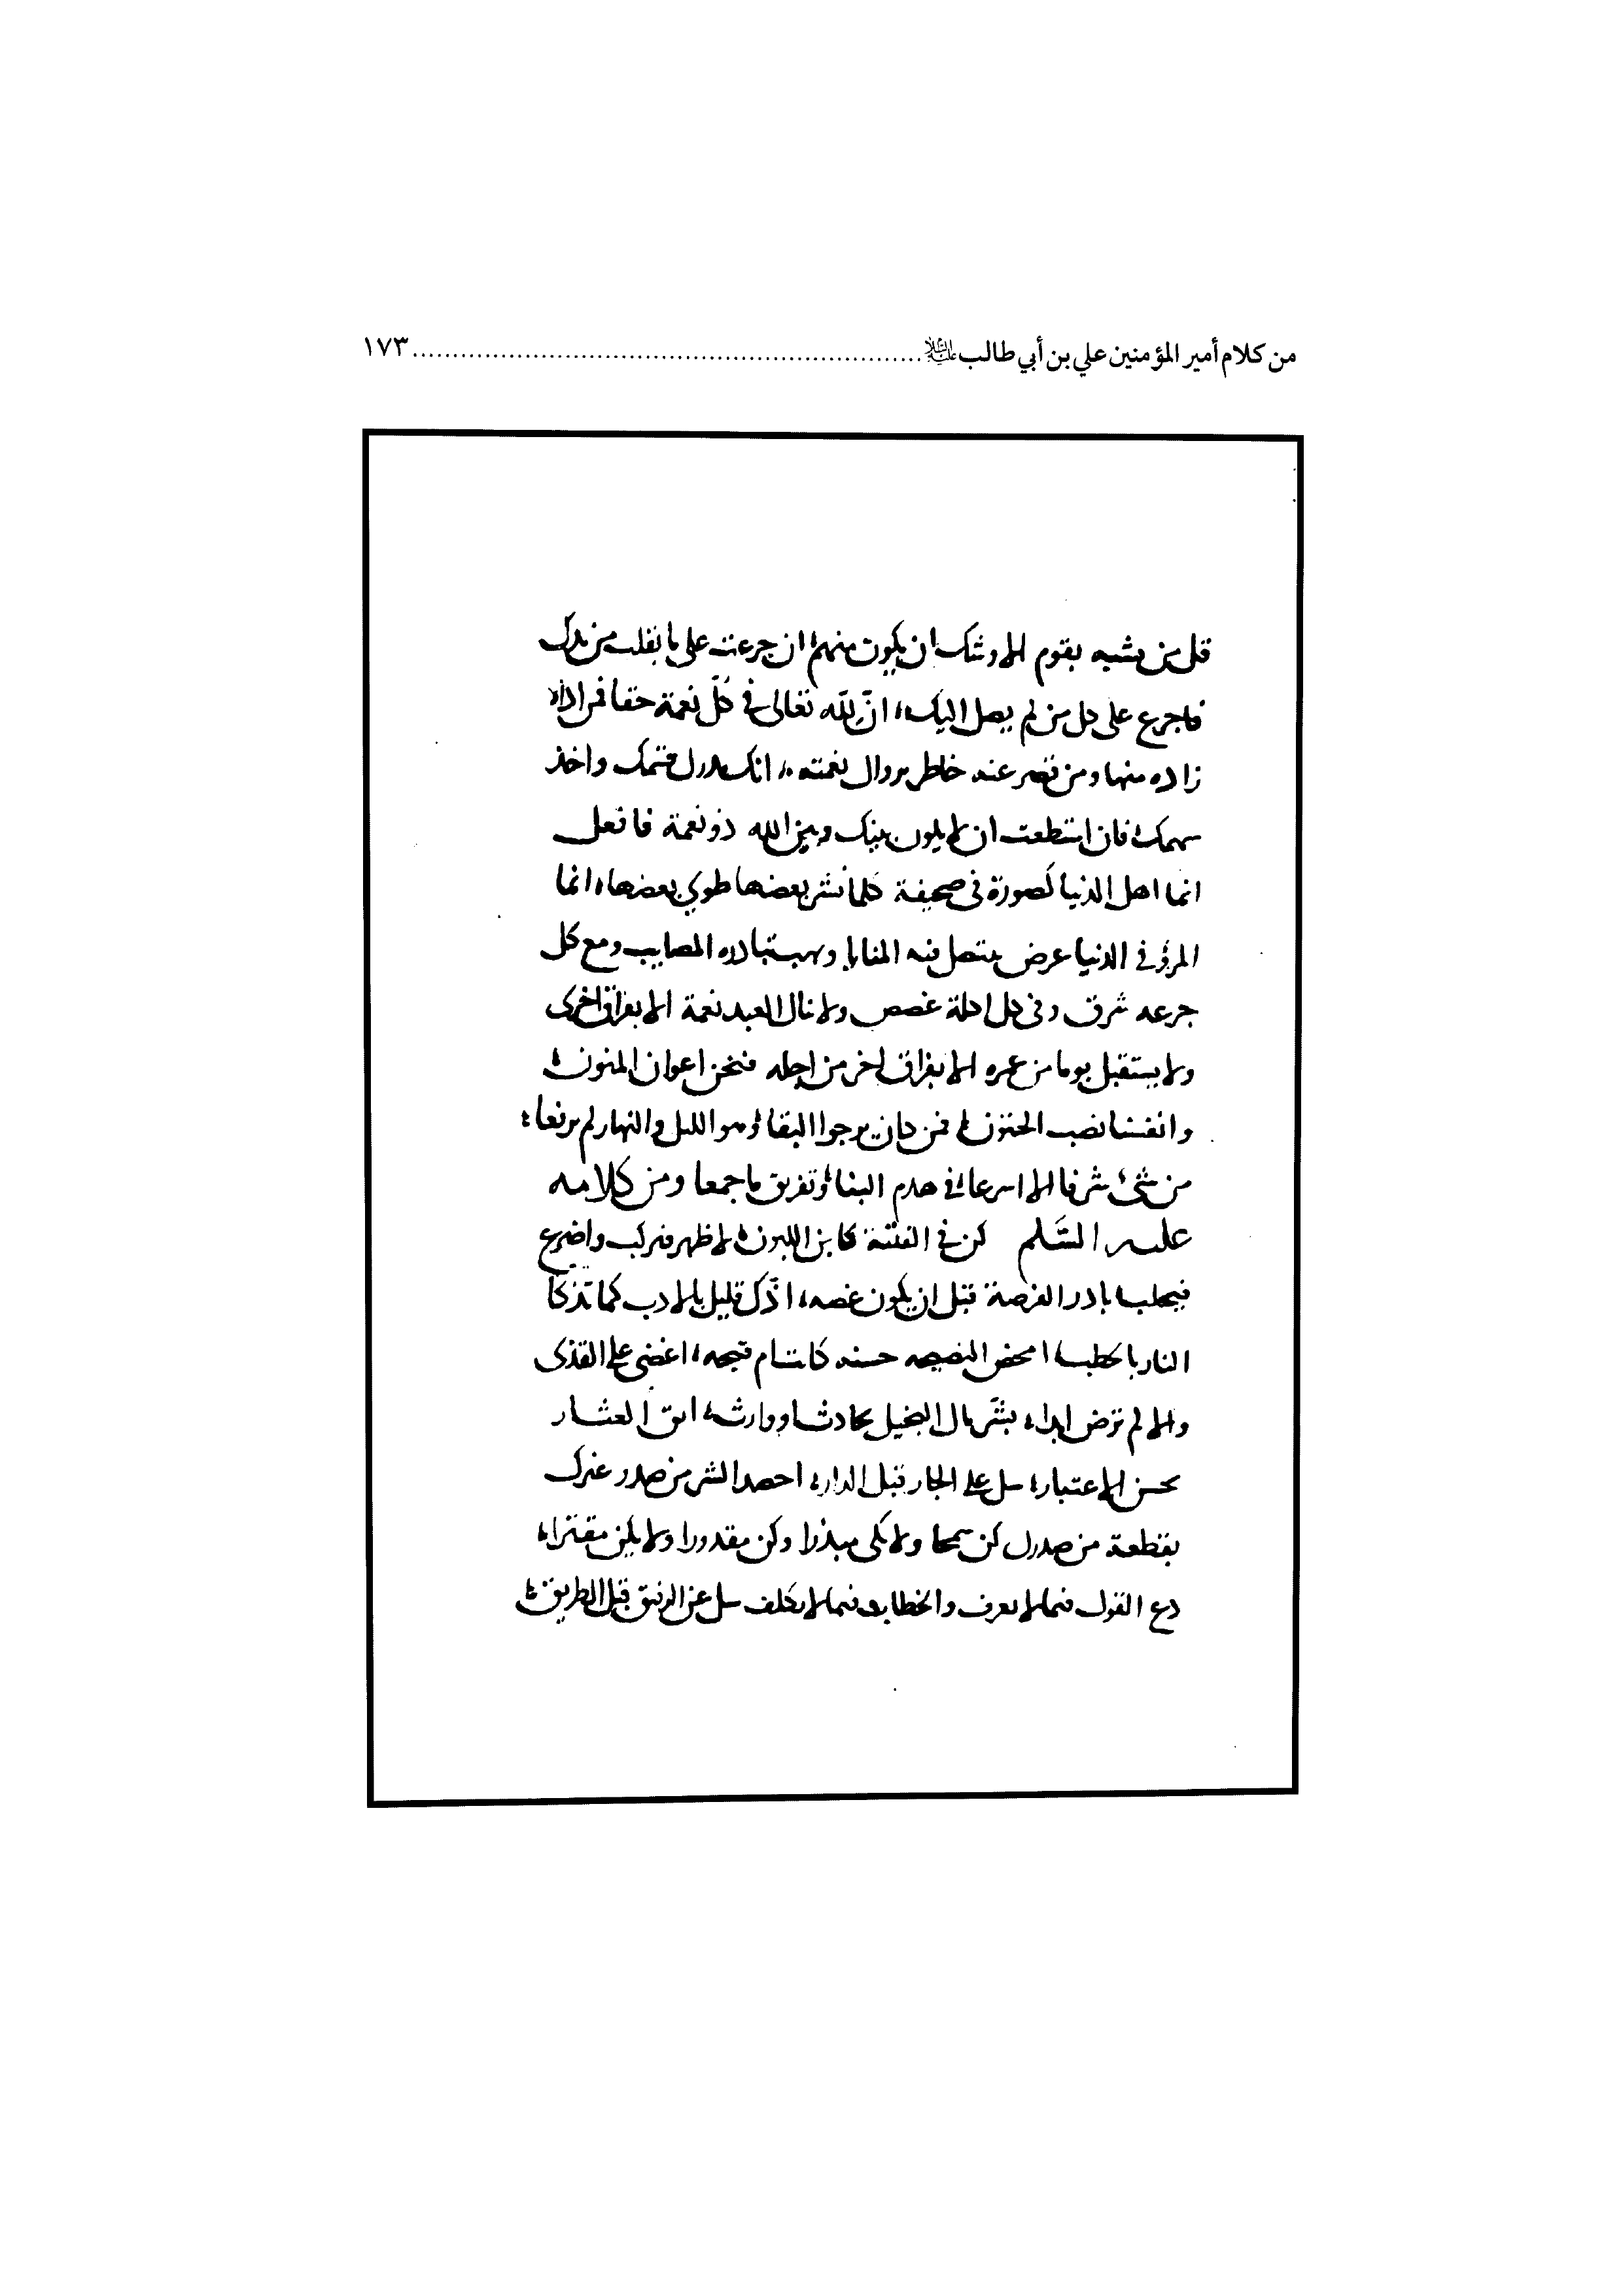 من كلام أمير المؤمنين علي بن أبي طالب عليه السلام ........ ١٧٣
قل من يشبه بقوم الا وشك ان يكون منهم ان جرعت على ما تفلت من يدك
فاجرع على كل من لم يصل اليك، انّ لله تعالى في كلّ نعمة حقا فمن اداه
زاده منها ومن قصر عنه خاطر بزوال نعمته، انك مدرك قسمك واخذ
سهمك فان استطعت ان لا يكون بينك وبين الله ذو نعمة فافعل
انما اهل الدنيا كصورة في صحيفة كلما نشر بعضها طوي بعضها، انما
المرؤ في الدنيا عرض ينتصل فيه المنايا ونهب تبادره المصايب ومع كل
جرعه شرق وفي كل اكلة غصص ولا نال العبد نعمة الا بفراق اخرى
ولا يستقبل يوما من عمره الا بفراق اخر من اجله فنحن اعوان المنون
وانفسنا نصب الحتوف فمن كان يرجوا البقا وهو الليل والنهار لم يرفعا
من شئ شرفا الا اسرعا في هدم البنا وتفريق ما جمعا ومن كلامه
عليه السَّلم كن في الفتنة كابن اللبون لا ظهر فيركب ولا ضرع
فيحلب بادر الفرصة قبل ان يكون غصه، اذّك قليل بالادب كما تذكا
النار بالحطب، امحض النصيحه حسنه كانت ام قبيحه، اغضي على القذى
والا لم ترض ابدا، بشّر مال البخيل بحادث او وارث، اتق العثار
بحسن الاعتبار، سل على الجار قبل الدار، احصد الشر من صدر غيرك
بقطعة من صدرك كن سمحا ولا تكن مبذرا وكن مقدورا ولا يكن مقترا،
دع القول فيما لا يعرف والخطاب فيما لا يكلف سل عن الرفيق قبل الطريق